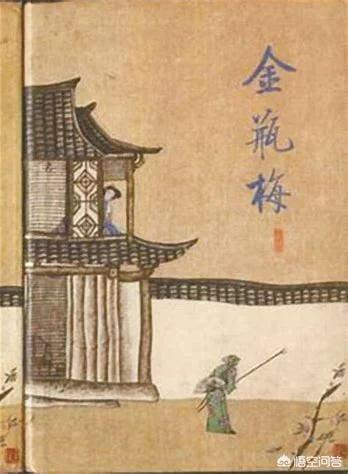 金瓶梅
悟空问答